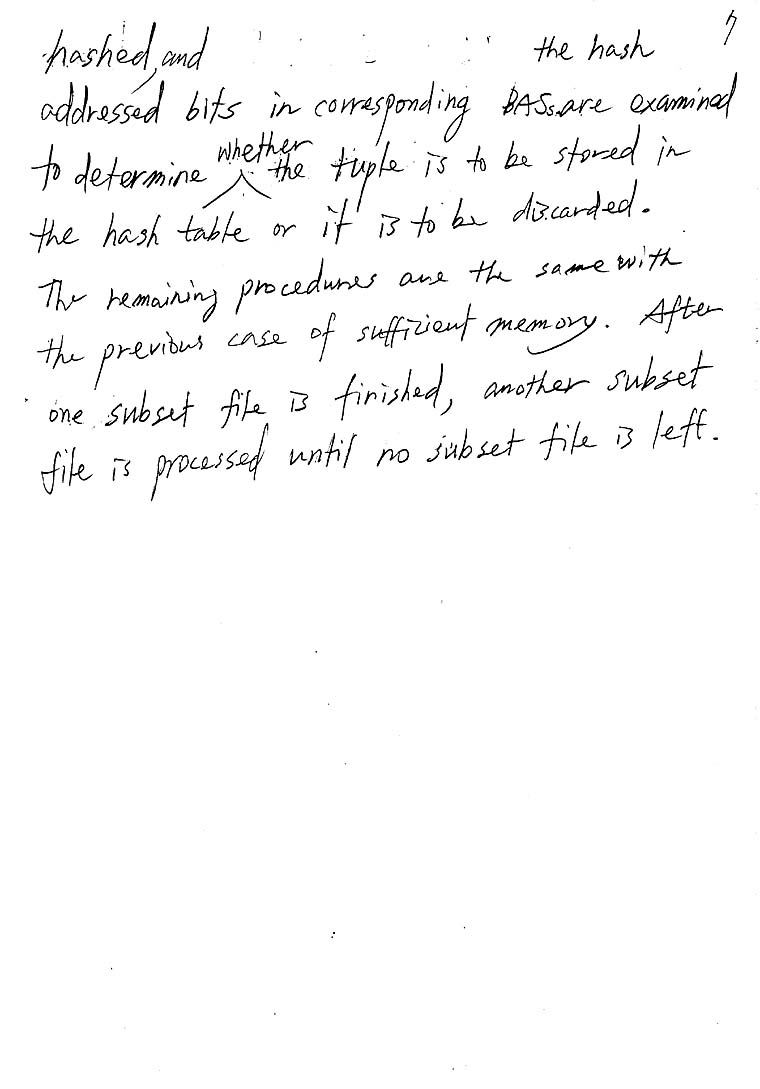 7
hashed, and the hash
addressed bits in corresponding BASs are examined
to determine whether the tuple is to be stored in
the hash table or it is to be discarded.
The remaining procedures are the same with
the previous case of sufficient memory. After
one subset file is finished, another subset
file is processed until no subset file is left.